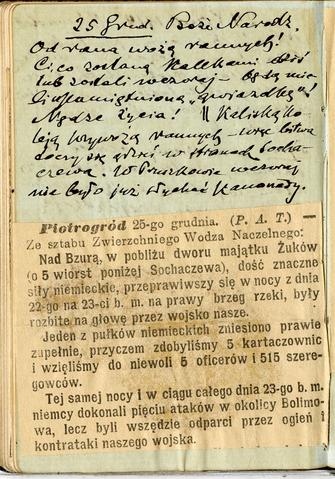 25 Grud. Boże Narodz.
Od rana wożą rannych!
Ci, co zostaną kalekami dziś
lub zostali wczoraj - będą mieć
"gwiazdkę"!
Nędze życia! || Kaliską ko-
leją przywożą rannych - wre bitwa
gdzieś w stronach Socha-
czewa. W Pruszkowie wczoraj
nie było już słychać kanonady.
Piotrogród 25-go grudnia. (P. A. T.)
Ze sztabu Zwierzchniego Wodza Naczelnego:
Nad Bzurą, w pobliżu dworu majątku Żuków
(o 5 wiorst poniżej Sochaczewa), dość znaczne
siły niemieckie, przeprawiwszy się w nocy z dnia
22-go na 23-ci b. m. na prawy brzeg rzeki, były
rozbite na głowę przez wojsko nasze.
Jeden z pułków niemieckich zniesiono prawie
zupełnie, przyczem zdobyliśmy 5 kartaczownic
i wzięliśmy do niewoli 5 oficerów i 515 szere-
gowców.
Tej samej nocy i w ciągu całego dnia 23-go b. m.
niemcy dokonali pięciu ataków w okolicy Bolimo-
wa, lecz byli wszędzie odparci przez ogień i
kontrataki naszego wojska.